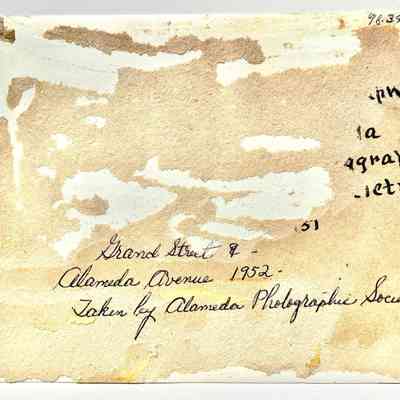 98.39
pn
la
agrap
iet
51
Grand Street & -
Alameda Avenue 1952 -
Taken by Alameda Photographic Socie